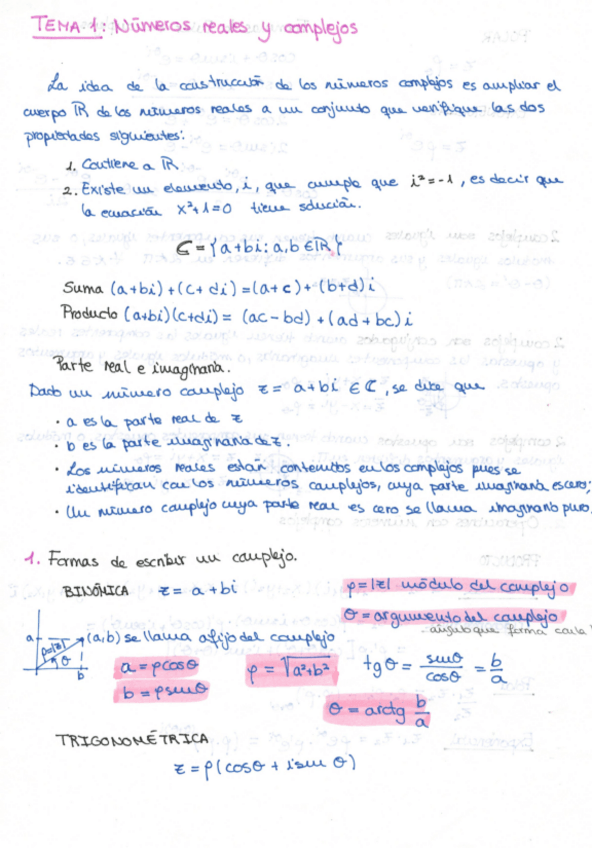 TEMA 1: Números reales y complejos
La idea de la construcción de los números complejos es ampliar el
cuerpo ℝ de los números reales a un conjunto que verifique las dos
propiedades siguientes:
1. Contiene a ℝ
2. Existe un elemento, i, que cumple que i² = -1, es decir que
la ecuación x²+1=0 tiene solución.
ℂ = {a+bi: a,b ∈ ℝ}
Suma (a+bi)+(c+di)=(a+c)+(b+d)i
Producto (a+bi)(c+di)= (ac-bd)+(ad+bc)i
Parte real e imaginaria.
Dado un número complejo z = a+bi ∈ ℂ, se dice que
· a es la parte real de z
· b es la parte imaginaria de z.
· Los números reales están contenidos en los complejos pues se
identifican con los números complejos, cuya parte imaginaria es cero;
· Un número complejo cuya parte real es cero se llama imaginario puro.
1. Formas de escribir un complejo.
BINÓMICA z = a+bi
ρ=|z| módulo del complejo
θ = argumento del complejo
ángulo que forma con la
a
ρ=|z|
θ
b
(a,b) se llama afijo del complejo
a = ρcosθ
b = ρsenθ
ρ = √a²+b²
tg θ = senθ/cosθ = b/a
θ = arctg b/a
TRIGONOMÉTRICA
z = ρ(cosθ + i sen θ)